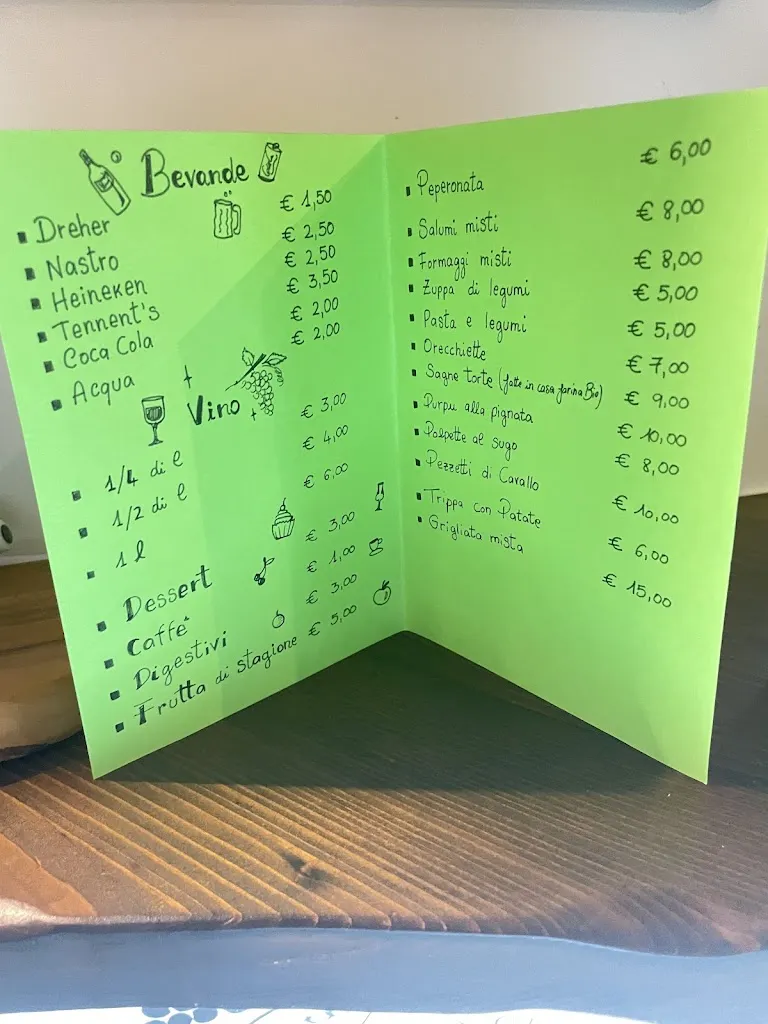 Bevande
▪ Dreher € 1,50
▪ Nastro € 2,50
▪ Heineken € 2,50
▪ Tennent's € 3,50
▪ Coca Cola € 2,00
▪ Acqua € 2,00
Vino
▪ 1/4 di l € 3,00
▪ 1/2 di l € 4,00
▪ 1 l € 6,00
▪ Dessert € 3,00
▪ Caffè € 1,00
▪ Digestivi € 3,00
▪ Frutta di stagione € 5,00
▪ Peperonata € 6,00
▪ Salumi misti € 8,00
▪ Formaggi misti € 8,00
▪ Zuppa di legumi € 5,00
▪ Pasta e legumi € 5,00
▪ Orecchiette € 7,00
▪ Sagne torte (fatte in casa farina Bio) € 9,00
▪ Purpu alla pignata € 10,00
▪ Polpette al sugo € 8,00
▪ Pezzetti di Cavallo € 10,00
▪ Trippa con Patate € 6,00
▪ Grigliata mista € 15,00